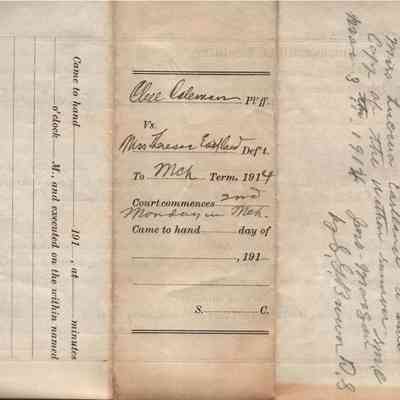 Came to hand 191 , at minutes
o'clock M., and executed on the within named
Coleman Pl'ff.
Vs.
Miss Theresa Eastland Def't.
To Mch Term, 1914
Court commences 2nd
Monday in Mch.
Came to hand day of
, 191
S. C.
Mrs Eastland a
Copy of the within
Mar 3 1914